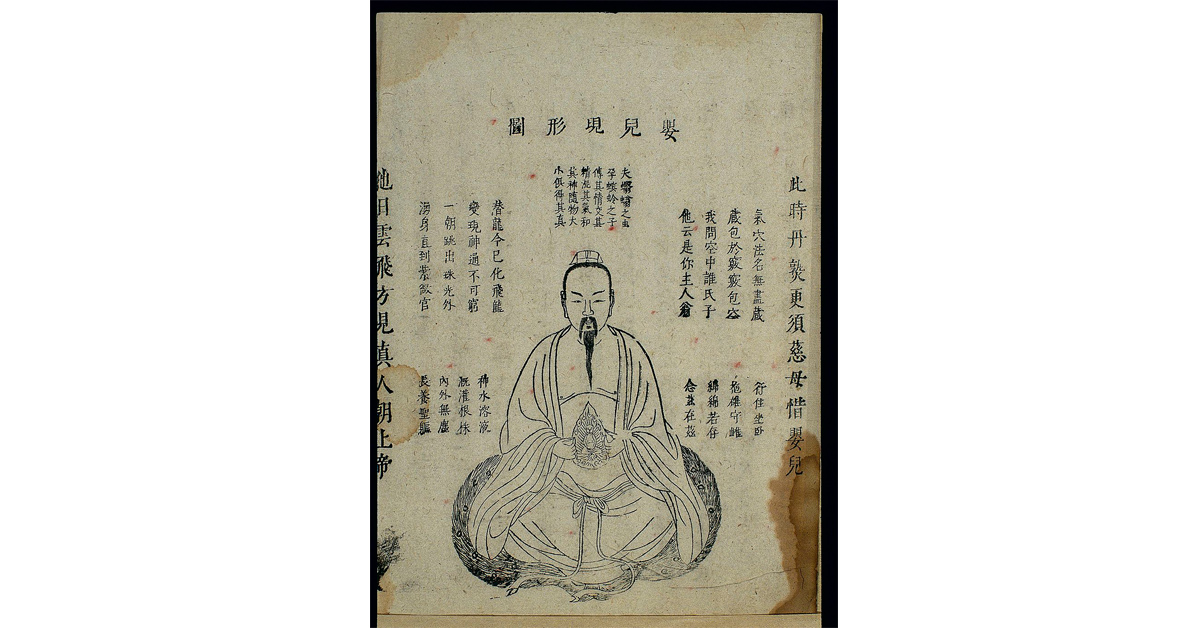 嬰兒現形圖
此時丹熟更須慈母惜嬰兒
氣穴法名無盡藏
藏包於竅竅包空
我問空中誰氏子
他云是你主人翁
夫蠮螉之虫
孕螟蛉之子
傳其情交其
精混其氣和
其神隨物大
小俱得其真
潛龍今已化飛龍
變現神通不可窮
一朝跳出珠光外
湧身直到紫微宮
行住坐臥
抱雄守雌
綿綿若存
念茲在茲
神水溶液
溉灌根株
內外無塵
長養聖軀
他日雲飛方見真人朝上帝